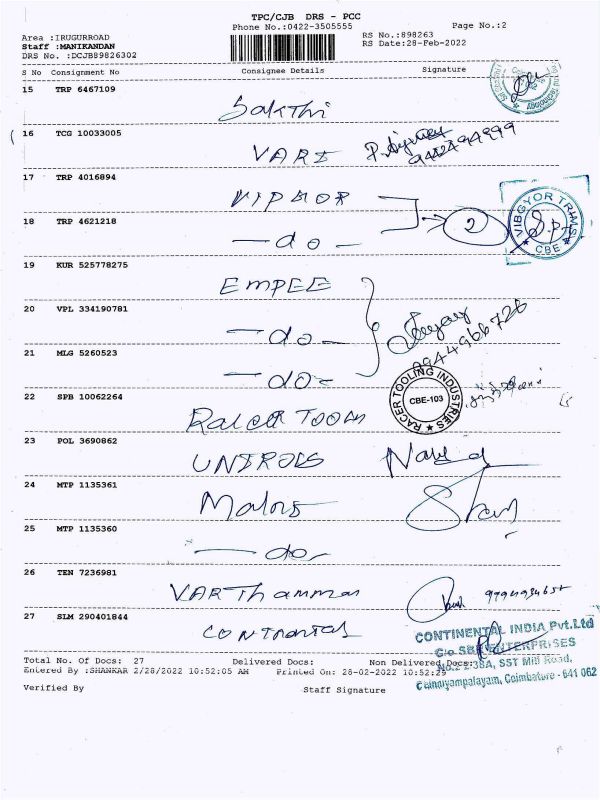 TPC/CJB DRS - PCC
Phone No.:0422-3505555
Page No.:2
Area :IRUGURROAD
RS No.:898263
Staff :MANIKANDAN
RS Date:28-Feb-2022
DRS No. :DCJB89826302
S No Consignment No Consignee Details Signature
15 TRP 6467109
Sakthi
16 TCG 10033005
VARI
17 TRP 4016894
2
VIBGYOR TRIMS
CBE
18 TRP 4621218
-do-
19 KUR 525778275
EMPEE
20 VPL 334190781
-do-
9944966726
21 MLG 5260523
-do-
22 SPB 10062264
RACER TOOLING INDUSTRIES
CBE-103
23 POL 3690862
24 MTP 1135361
25 MTP 1135360
-do-
26 TEN 7236981
VARThamman
27 SLM 290401844
CONTINENTAL INDIA Pvt.Ltd
C/o SBK ENTERPRISES
No.2-238A, SST Mill Road,
Chinniyampalayam, Coimbatore - 641 062
Total No. Of Docs: 27 Delivered Docs: Non Delivered Docs:
Entered By :SHANKAR 2/28/2022 10:52:05 AM Printed On: 28-02-2022 10:52:29
Verified By Staff Signature